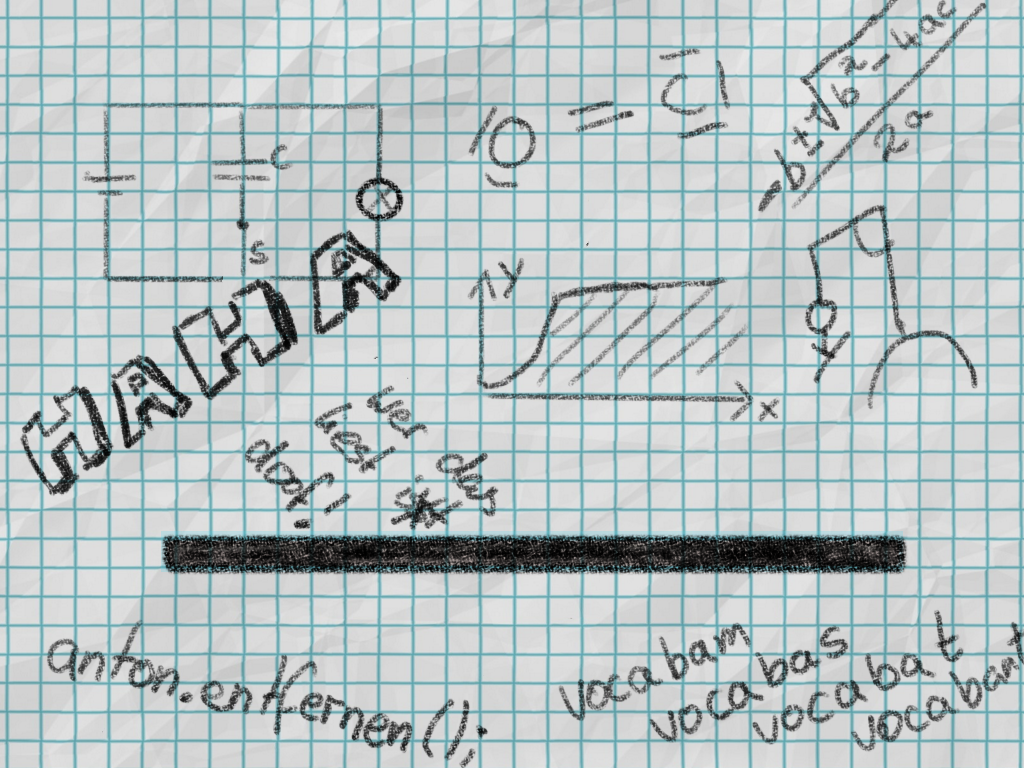 C
S
-b±√b²-4ac
2a
HAHA
y
x
wer das
liest
doof!
anton.entfernen();
vocabam
vocabas
vocabat
vocabant